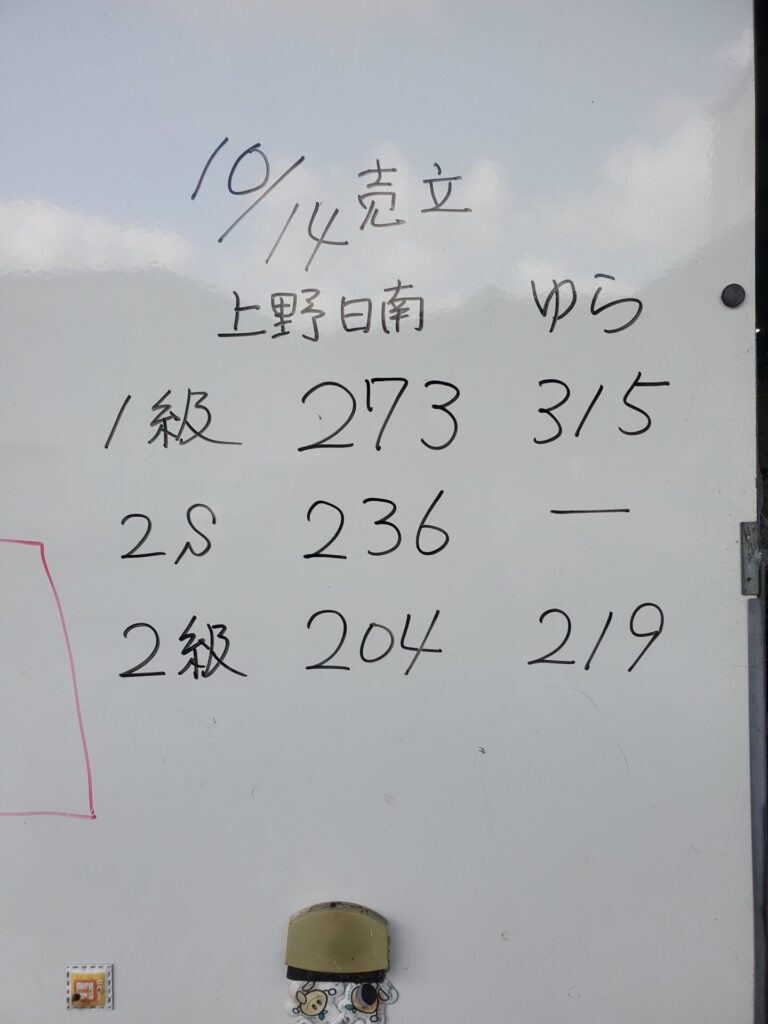 10/14 売立
上野 日南 ゆら
1級 273 315
2S 236 ー
2級 204 219